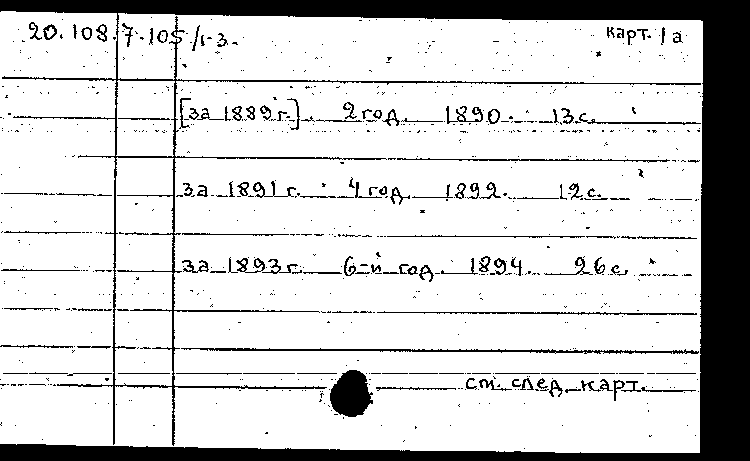 20.108.7.105/1-3. карт. 1а
[за 1889г.]. 2год. 1890. 13с.
за 1891г. 4год. 1892. 12с.
за 1893г. 6-й год. 1894. 26с.
см. след. карт.